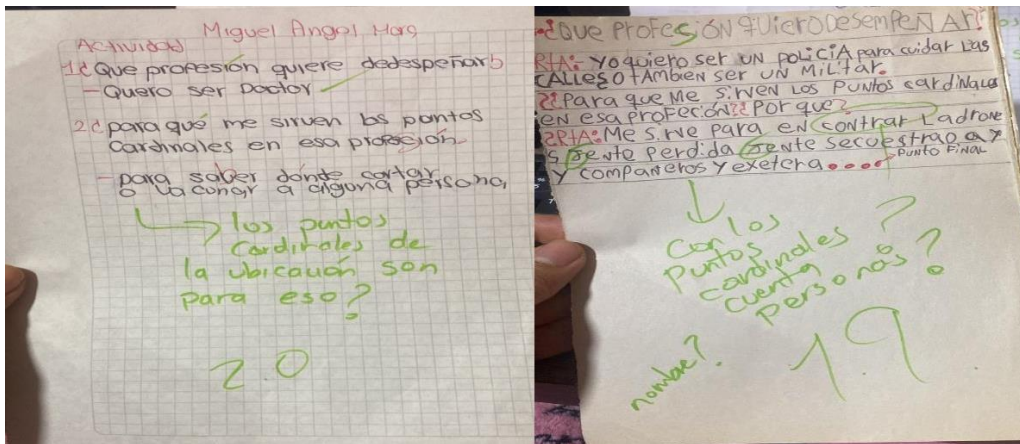 Miguel Angel
Actividad
1¿ Que profesión quiere dedespeñar
- Quero ser Doctor
2¿ para qué me sirven los puntos
Cardinales en esa profesión
- para saber dónde cortar
o vacunar a alguna persona
los puntos
Cardinales de
la ubicación son
para eso?
2.0
¿QUE PROFESIÓN QUIERO DESEMPEÑAR?
RTA: YO quiero ser UN POLICIA para cuidar LAS
CALLES O tAmbien ser UN MiLitar.
2¿Para que Me sirven LOS PUNTOS cardinales
EN esa PROFECIÓN?¿ POr que?
2RTA: Me sirve para en contrar Ladrone
s gente perdida gente secuestrao
y compañeros y exetera....
PUNTO FINAL
Con los
Puntos
cardinales ?
cuenta
personas ?
nombre?
1.9